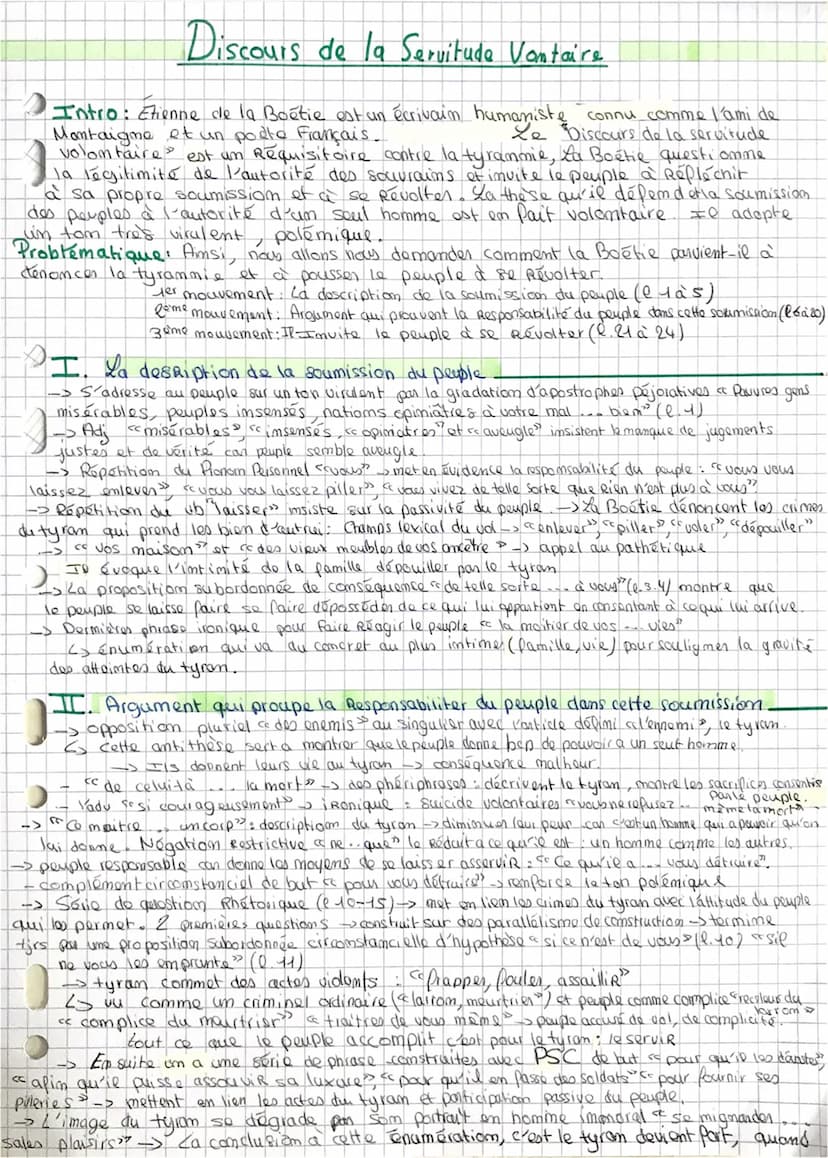 Discours de la Servitude Vontaire
Intro: Étienne de la Boétie est un écrivain humaniste connu comme l'ami de
Montaigne et un poète Français. Le "Discours de la servitude
volontaire" est un Réquisitoire contre la tyrannie, La Boétie questionne
la légitimité de l'autorité des souverains et invite le peuple à Réfléchir
à sa propre soumission et à se Révolter. La thèse qu'il défend est la soumission
des peuples à l'autorité d'un seul homme est en fait volontaire. Il adopte
un ton très virulent, polémique.
Problématique: Ainsi, nous allons nous demander comment la Boétie parvient-il à
dénoncer la tyrannie et à pousser le peuple à se Révolter.
1er mouvement: La description de la soumission du peuple (l 1 à 5)
2ème mouvement: Argument qui prouvent la Responsabilité du peuple dans cette soumission (l 6 à 20)
3ème mouvement: Il Invite le peuple à se Révolter (l. 21 à 24)
I. La desRiption de la soumission du peuple
-> S'adresse au peuple sur un ton virulent par la gradation d'apostrophes péjoratives "Pauvres gens
misérables, peuples insensés, nations opiniâtres à votre mal ... bien" (l. 1)
-> Adj "misérables", "insensés, "opiniatres" et "aveugle" insistent le manque de jugements
justes et de vérité car peuple semble aveugle.
-> Répétition du Pronom Personnel "vous" -> met en Évidence la responsabilité du peuple : "vous vous
laissez enlever", "vous vous laissez piller", "vous vivez de telle sorte que Rien n'est plus à vous"
-> Répétition du vb "laisser" insiste sur la passivité du peuple -> La Boétie dénoncent les crimes
du tyran qui prend les bien d'autrui: Champs lexical du vol -> "enlever", "piller", "voler", "dépouiller"
-> "vos maison" et "des vieux meubles de vos ancêtre" -> appel au pathétique
Il évoque l'intimité de la famille dépouiller par le tyran
-> La proposition subordonnée de conséquence "de telle sorte ... à vous" (l. 3.4) montre que
le peuple se laisse faire se faire déposséder de ce qui lui appartient en consentant à ce qui lui arrive.
-> Dernières phrase ironique pour faire Réagir le peuple "la moitier de vos ... vies"
↳ énumération qui va du concret au plus intime (famille, vie) pour souligner la gravité
des atteintes du tyran.
II. Argument qui proupe la Responsabiliter du peuple dans cette soumission
-> opposition pluriel "des enemis" au singulier avec l'article défini "l'ennemi", le tyran.
↳ Cette antithèse sert a montrer que le peuple donne bcp de pouvoir a un seul homme.
-> Ils donnent leurs vie au tyran -> conséquence malheur.
- "de celui à ... la mort" -> des phériphrases : décrivent le tyran, montre les sacrifices consentis
par le peuple.
- l'adv "si courageusement" -> ironique : suicide volontaires "vous ne refusez .. même la mort"
-> "Ce maître ... un corp" : description du tyran -> diminuer leur peur car c'est un homme qui a pouvoir qu'on
lui donne. Négation Restrictive "ne.. que" le Réduit a ce qu'il est : un homme comme les autres.
-> peuple responsable car donne les moyens de se laisser asservir : "Ce qu'il a ... vous détruire".
- complément circonstanciel de but "pour vous détruire" -> renforce le ton polémique
-> Série de question Rhétorique (l 10-15) -> met en lien les crimes du tyran avec l'attitude du peuple
qui les permet. 2 premières questions -> construit sur des parallélisme de construction -> termine
tjrs par une proposition subordonnée circonstancielle d'hypothèse "si ce n'est de vous" (l. 10) "s'il
ne vous les emprunte" (l. 11)
-> tyran commet des actes violents : "frapper, fouler, assaillir"
↳ vu comme un criminel ordinaire ("larron, meurtrier") et peuple comme complice "receleur du
larron"
"complice du meurtrier" "traîtres de vous même" -> peuple accusé de vol, de complicité.
tout ce que le peuple accomplit c'est pour le tyran : le servir
-> Ensuite on a une série de phrase construites avec PSC de but "pour qu'il les dévaste",
"afin qu'il puisse assouvir sa luxure", "pour qu'il en fasse des soldats" "pour fournir ses
pilleries" -> mettent en lien les actes du tyran et participation passive du peuple.
-> L'image du tyran se dégrade par son portrait en homme immoral "se mignarder ...
sales plaisirs" -> La conclusion à cette énumération, c'est le tyran devient fort, quand